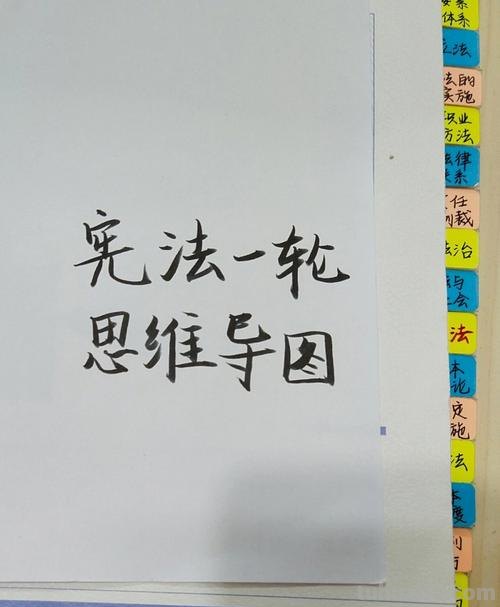 宪法一轮
思维导图
系
体系
立法
法的
实施
职业
方法
法律
关系
责任
制裁
法治
法与
社会
法
本
论
定
施
法
本
度